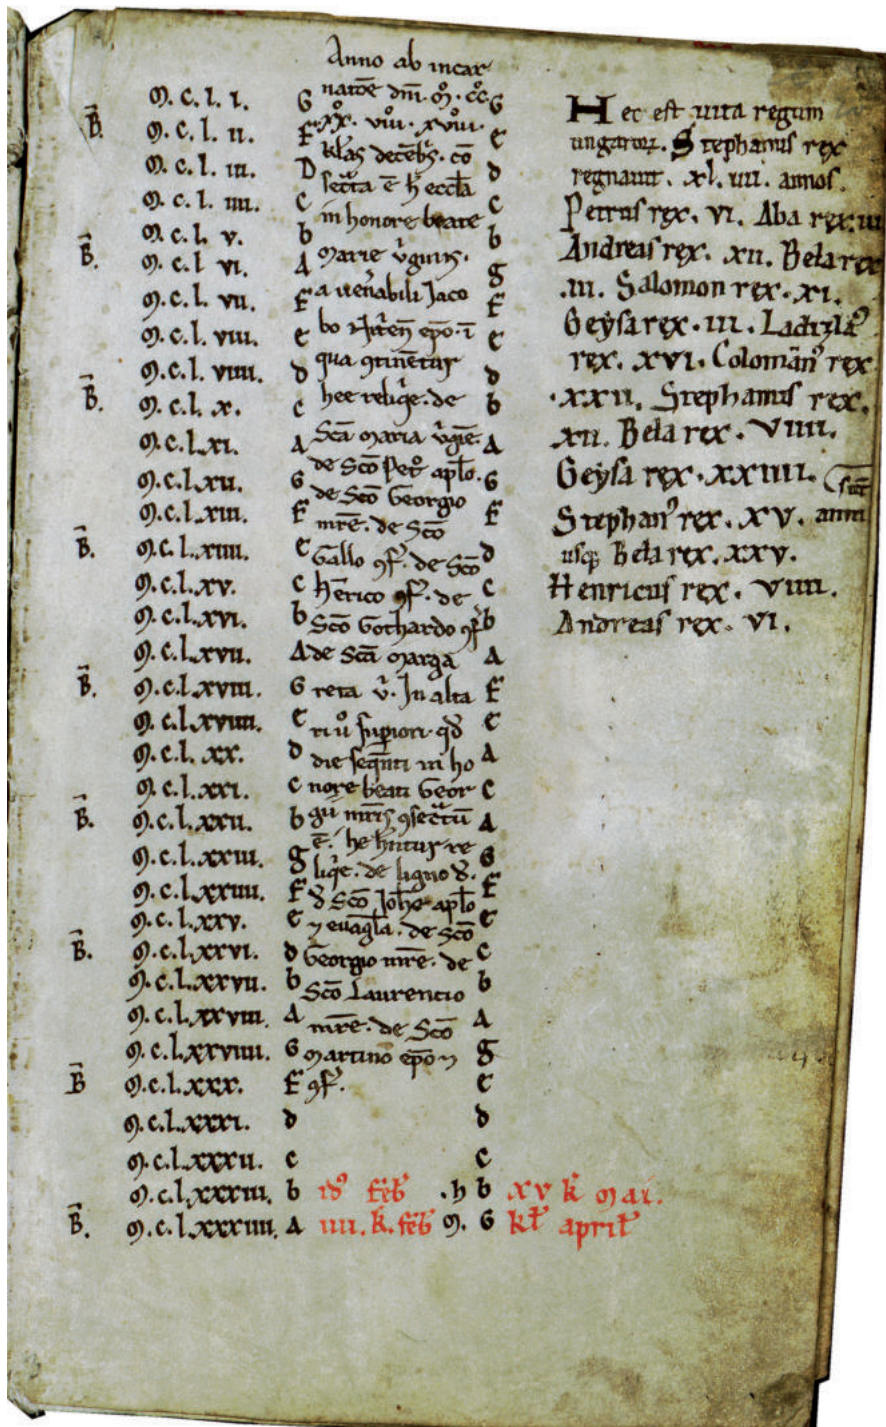 M. c. l. i. G
B. M. c. l. ii. F
M. c. l. iii. D
M. c. l. iiii. c
M. c. l. v. b
B. M. c. l. vi. A
M. c. l. vii. F
M. c. l. viii. E
M. c. l. viiii. d
B. M. c. l. x. c
M. c. l. xi. A
M. c. l. xii. G
M. c. l. xiii. F
B. M. c. l. xiiii. E
M. c. l. xv. c
M. c. l. xvi. b
M. c. l. xvii. A
B. M. c. l. xviii. G
M. c. l. xviiii. E
M. c. l. xx. d
M. c. l. xxi. c
B. M. c. l. xxii. b
M. c. l. xxiii. g
M. c. l. xxiiii. F
M. c. l. xxv. E
B. M. c. l. xxvi. d
M. c. l. xxvii. b
M. c. l. xxviii. A
M. c. l. xxviiii. G
B M. c. l. xxx. F
M. c. l. xxxi. d
M. c. l. xxxii. c
M. c. l. xxxiii. b id' feb' . h b xv k mar.
B. M. c. l. xxxiiii. A iiii. k. feb' M. G kł april'
Anno ab incar
natōe dnī. M̊. cc̊.
xx̊. viii̊. xviii̊.
kl'as decēb's. cō
sec̄ta ē h' eccl̄a
in honore beate
Marie v̓ginis.
a uen̄abili Jaco
bo Nit'ēn ep̄o. ī
qua ꝯtinētur
hee reliq̓e. de
Sc̄a Maria v̓gīe.
de Sc̄o Pet̊ ap̄lo.
de Sc̄o Georgio
mr̄e. de Sc̄o
Gallo ꝯf'. de Sc̄o
Hērico ꝯf'. de
Sc̄o Gothardo ꝯf'
de Sc̄a Marga
reta v̓. In alta
ri ů supiori. qd̄
die seq̄nti in ho
nore beati Geor
gii mr̄is ꝯsec̄tū
ē. he hn̄tur re
liq̓e. de ligno d.
d̓ Sc̄o Joh̄e ap̄lo
⁊ euāgl̄a. de Sc̄o
Georgio mr̄e. de
Sc̄o Laurencio
mr̄e. de Sc̄o
Martino ep̄o ⁊
ꝯf'.
G
E
d
c
b
g
F
E
d
b
A
G
F
d
c
b
A
F
E
A
C
A
G
F
E
c
b
A
g
E
d
c
Hec est uita regum
ungaroꝝ. Stephanus rex
regnauit. xl. iiii. annos.
Petrus rex. vi. Aba rex. iii
Andreas rex. xii. Bela rex
.iii. Salomon rex. xi.
Geysa rex. iii. Ladizla'
rex. xvi. Colomān' rex
.xxii. Stephanus rex.
xii. Bela rex. viiii.
Geysa rex. xxiiii.
Stephan' rex. xv. anni
usq; Bela rex. xxv.
Henricus rex. viiii.
Andreas rex. vi.